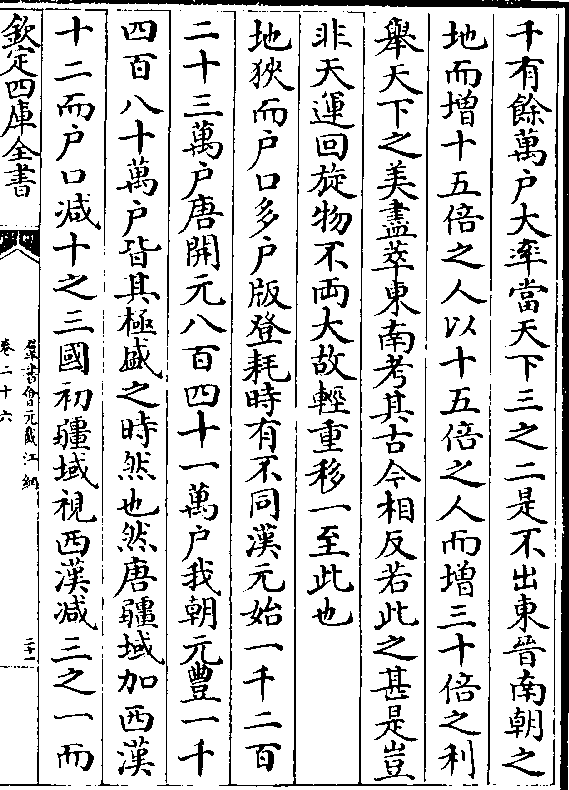 千有餘萬户大率當天下三之二是不出東晉南朝之
地而增十五倍之人以十五倍之人而增三十倍之利
舉天下之美盡萃東南考其古今相反若此之甚是豈
非天運回旋物不両大故輕重移一至此也
地狹而户口多户版登耗時有不同漢元始一千二百
二十三萬户唐開元八百四十一萬户我朝元豐一千
四百八十萬户皆其極盛之時然也然唐疆域加西漢
十二而户口减十之三國初疆域視西漢减三之一而
欽定四庫全書
羣書會元截江網
卷二十六
二十一